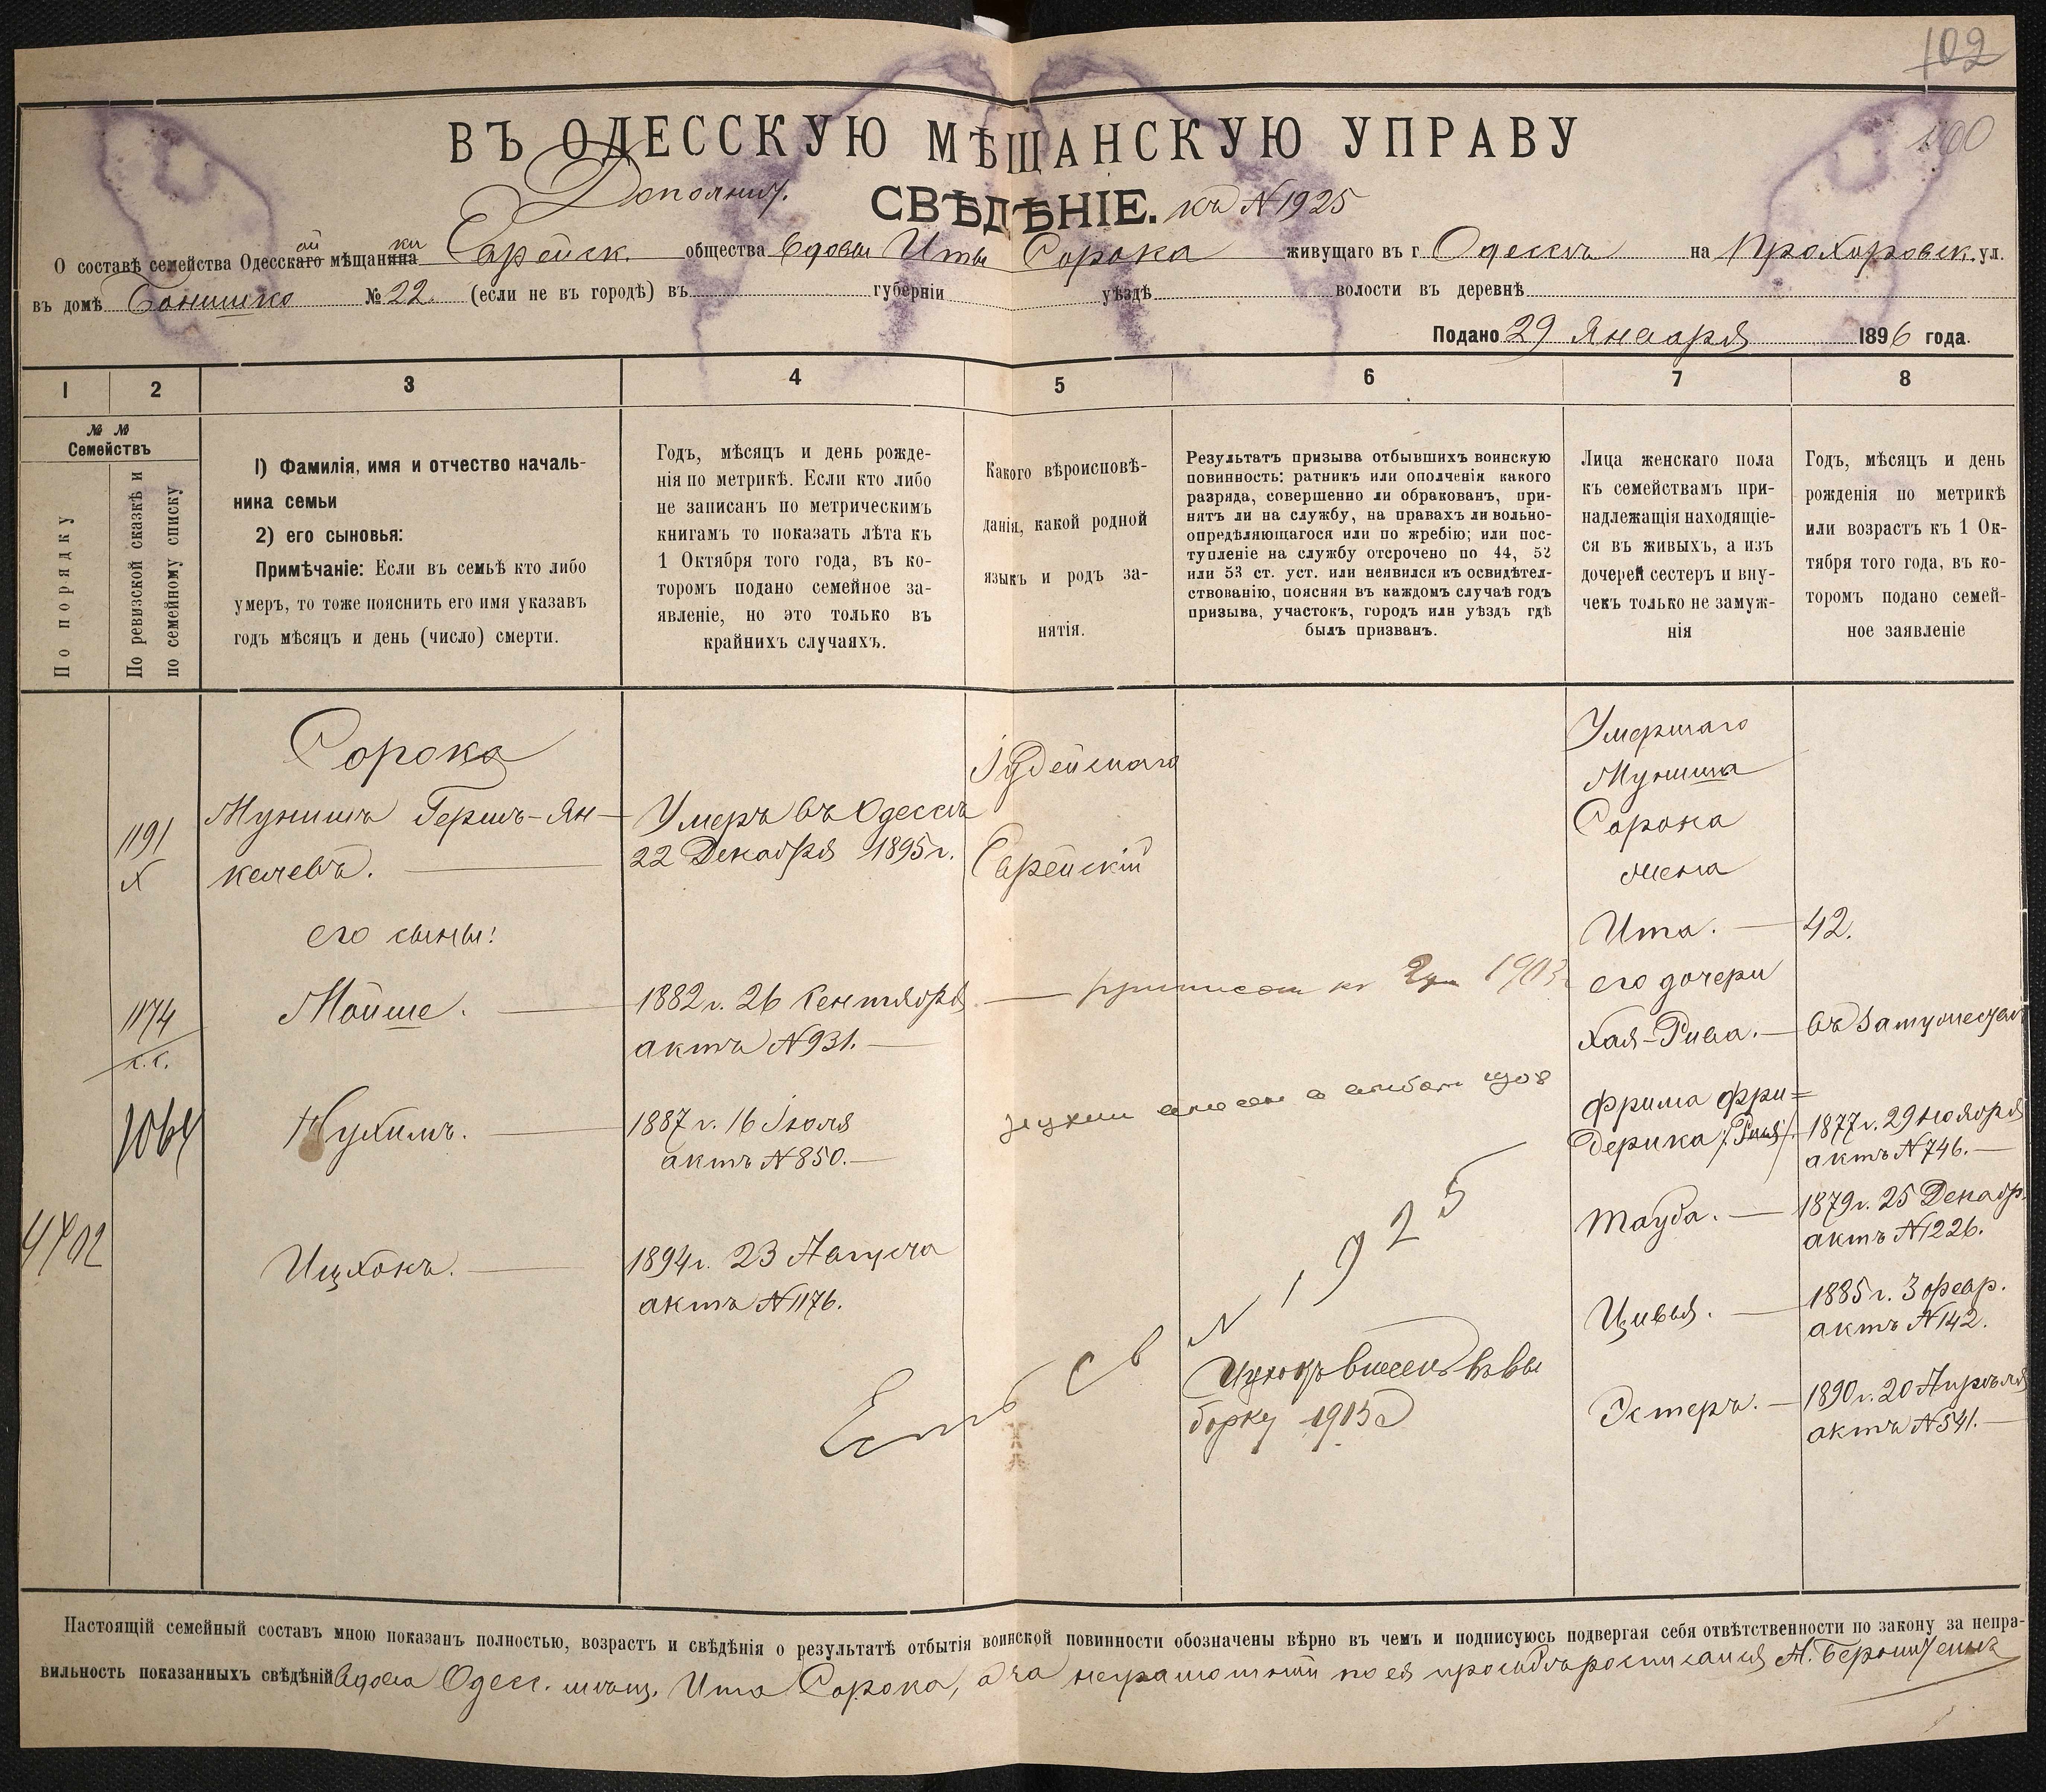 102
100
ВЪ ОДЕССКУЮ МѢЩАНСКУЮ УПРАВУ
Дополнит. СВѢДѢНІЕ. къ N 1925
О составѣ семейства Одесскаго ой мѣщанина ки Еврейск. общества вдовы Иты Сорока живущаго въ г Одессѣ на Прохоровск. ул.
въ домѣ № 22. (если не въ городѣ) въ губерніи уѣздѣ волости въ деревнѣ
Подано 29 Января 1896 года.
1 2 3 4 5 6 7 8
№ № Семействъ
По порядку
По ревизской сказкѣ и
по семейному списку
1) Фамилія, имя и отчество началь-
ника семьи
2) его сыновья:
Примѣчаніе: Если въ семьѣ кто либо
умеръ, то тоже пояснить его имя указавъ
годъ мѣсяцъ и день (число) смерти.
Годъ, мѣсяцъ и день рожде-
нія по метрикѣ. Если кто либо
не записанъ по метрическимъ
книгамъ то показать лѣта къ
1 Октября того года, въ ко-
торомъ подано семейное за-
явленіе, но это только въ
крайнихъ случаяхъ.
Какого вѣроисповѣ-
данія, какой родной
языкъ и родъ за-
нятія.
Результатъ призыва отбывшихъ воинскую
повинность: ратникъ или ополченія какого
разряда, совершенно ли обракованъ, при-
нятъ ли на службу, на правахъ ли вольно-
опредѣляющагося или по жребію; или пос-
тупленіе на службу отсрочено по 44, 52
или 53 ст. уст. или неявился къ освидѣтел-
ствованію, поясняя въ каждомъ случаѣ годъ
призыва, участокъ, городъ или уѣздъ гдѣ
былъ призванъ.
Лица женскаго пола
къ семействамъ при-
надлежащія находящіе-
ся въ живыхъ, а изъ
дочерей сестеръ и вну-
чекъ только не замуж-
нія
Годъ, мѣсяцъ и день
рожденія по метрикѣ
или возрастъ къ 1 Ок-
тября того года, въ ко-
торомъ подано семей-
ное заявленіе
Сорока
1191
х
Мунишъ Гершъ-Ян-
келевъ.
Умеръ въ Одессѣ
22 Декабря 1895 г.
Іудейскаго
Еврейскій
его сыны:
1174
с.с.
Мойше.
1882 г. 26 Сентября
актъ N 931.
приписан к 1903
1064
Нухимъ.
1887 г. 16 Іюля
актъ N 850.
Нухим
4702
Ицхокъ.
1894 г. 23 Августа
актъ N 1176.
Есть св N 1925
Ицхокъ внесенъ въ вы
борку 1915
Умершаго
Муниша
Сорока
жена
Ита. 42.
его дочери
Хая-Рива. въ замужествѣ
Фрима Фри=
дерика 1877 г. 29 Ноября
актъ N 746.
Тауба. 1879 г. 25 Декабр.
актъ N 1226.
Цивья. 1885 г. 3 февр.
актъ N 142.
Эстеръ. 1890 г. 20 Апрѣля
актъ N 541.
Настоящій семейный составъ мною показанъ полностью, возрастъ и свѣдѣнія о результатѣ отбытія воинской повинности обозначены вѣрно въ чемъ и подписуюсь подвергая себя отвѣтственности по закону за непра-
вильность показанныхъ свѣдѣній Вдова Одес. мѣщ. Ита Сорока, а за неграмотной по ея просьбѣ росписался